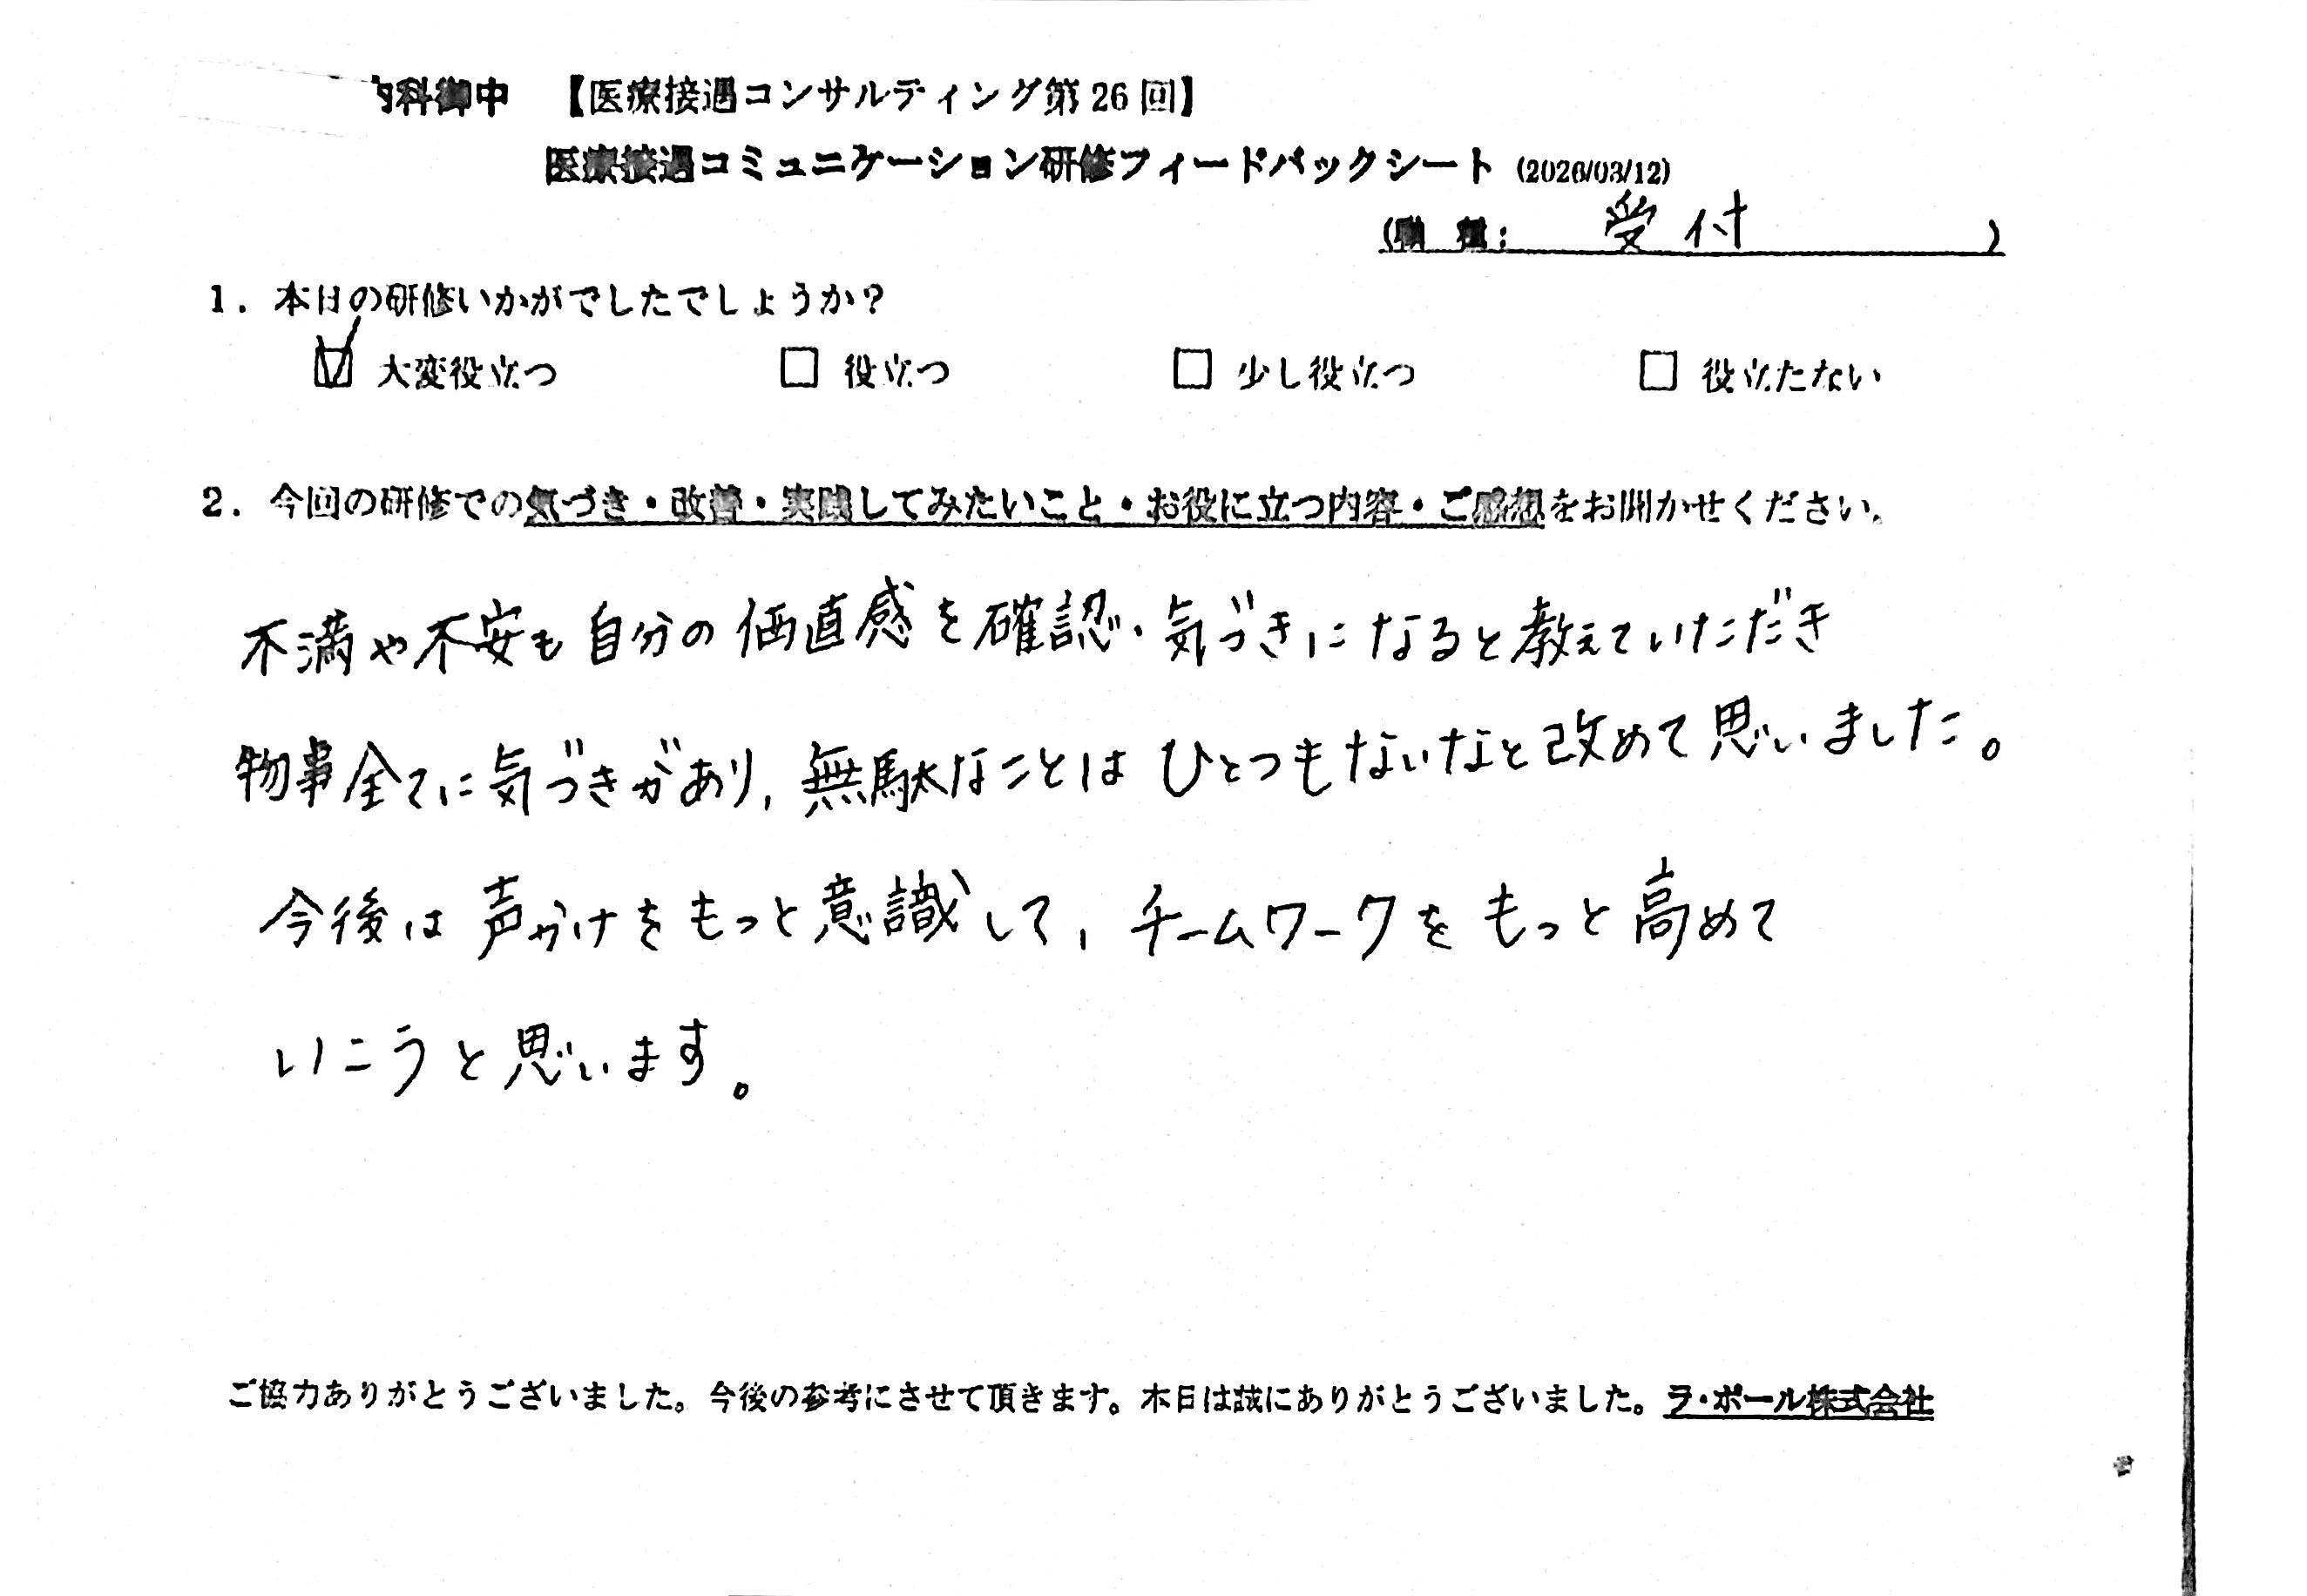 内科御中 【医療接遇コンサルティング第26回】
医療接遇コミュニケーション研修フィードバックシート (2026/03/12)
(職 種: 受付 )
1. 本日の研修いかがでしたでしょうか?
☑ 大変役立つ □ 役立つ □ 少し役立つ □ 役立たない
2. 今回の研修での気づき・改善・実践してみたいこと・お役に立つ内容・ご感想をお聞かせください。
不満や不安も自分の価直感を確認・気づきになると教えていただき
物事全てに気づきがあり、無駄なことはひとつもないなと改めて思いました。
今後は声かけをもっと意識して、チームワークをもっと高めて
いこうと思います。
ご協力ありがとうございました。今後の参考にさせて頂きます。本日は誠にありがとうございました。ラ・ポール株式会社